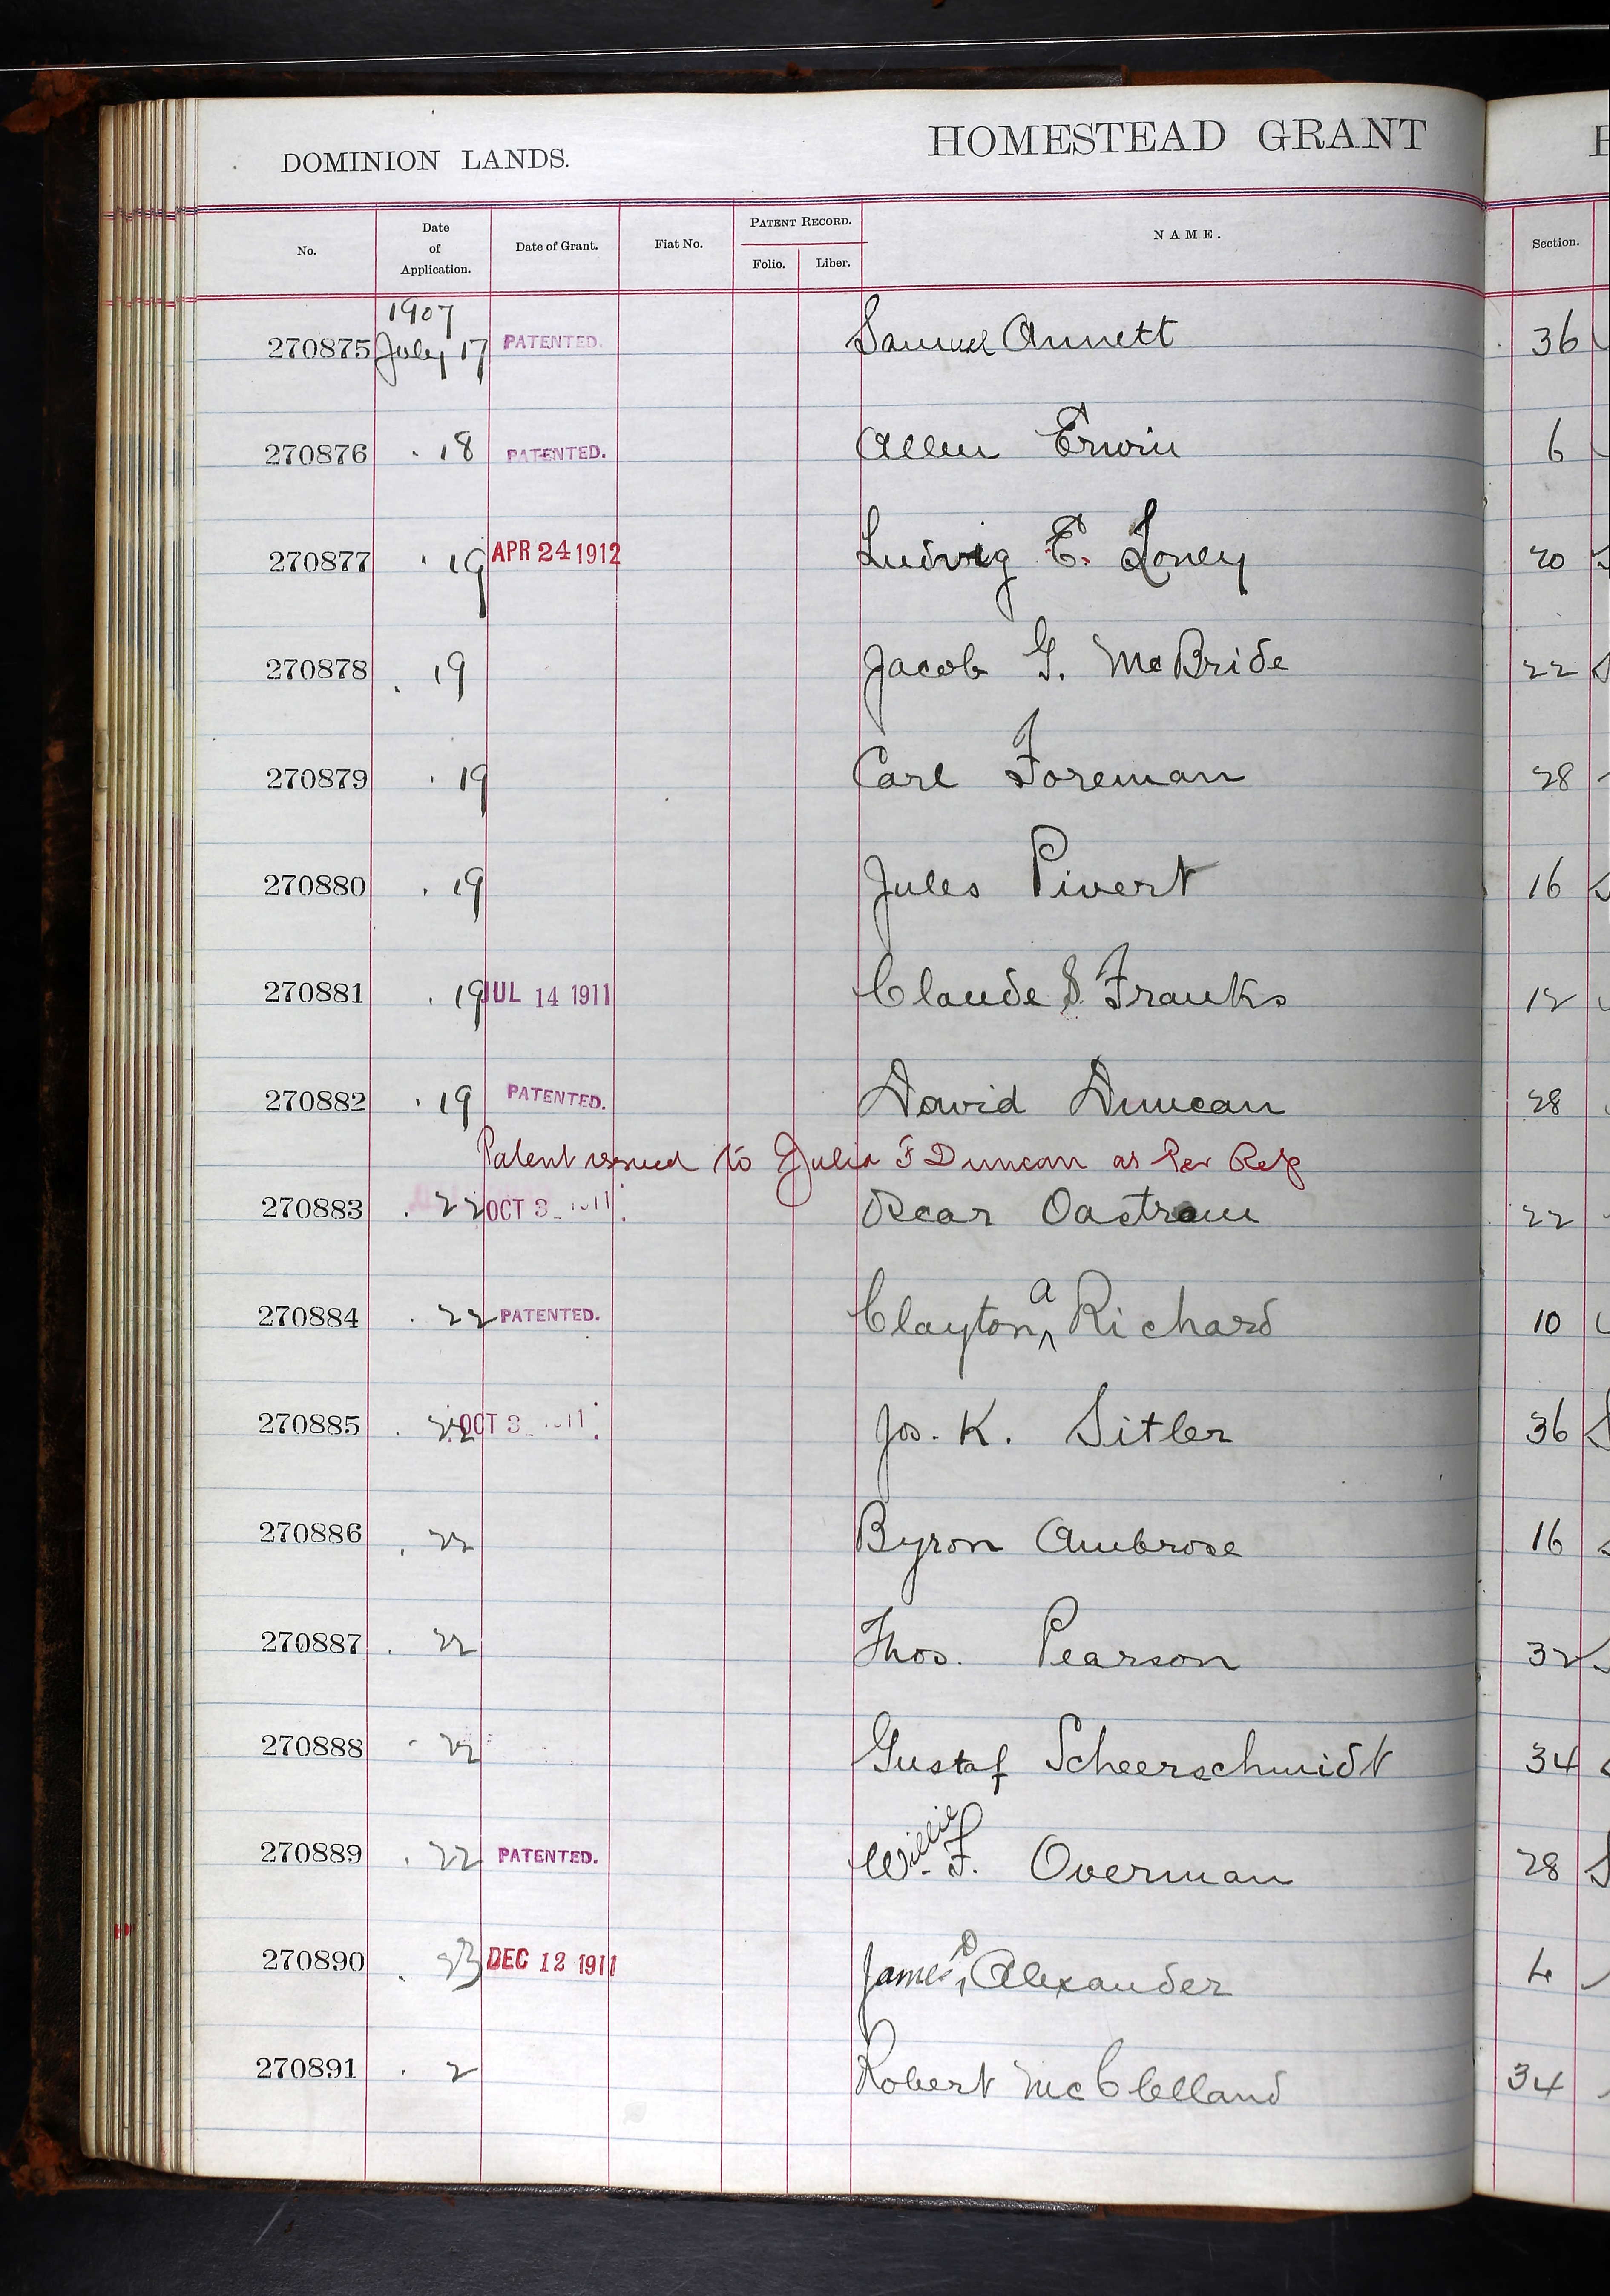 DOMINION LANDS. HOMESTEAD GRANT
No. Date of Application. Date of Grant. Fiat No. PATENT RECORD. Folio. Liber. NAME. Section.
1907
270875 July 17 PATENTED. Samuel Annett 36
270876 . 18 PATENTED. Allen Erwin 6
270877 . 19 APR 24 1912 Ludwig E. Loney 20
270878 . 19 Jacob G. McBride 22
270879 . 19 Carl Foreman 28
270880 . 19 Jules Pivert 16
270881 . 19 JUL 14 1911 Claude S. Franks 12
270882 . 19 PATENTED. David Duncan 28
Patent issued to Julia F Duncan as Per Ref
270883 . 22 OCT 3 1911 Oscar Oastrom 22
270884 . 22 PATENTED. Clayton A Richard 10
270885 . 22 OCT 3 1911 Jos. K. Sitler 36
270886 . 22 Byron Ambrose 16
270887 . 22 Thos. Pearson 32
270888 . 22 Gustaf Scheerschmidt 34
270889 . 22 PATENTED. Willie F. Overman 28
270890 . 23 DEC 12 1911 James Alexander 4
270891 . 2 Robert McClelland 34